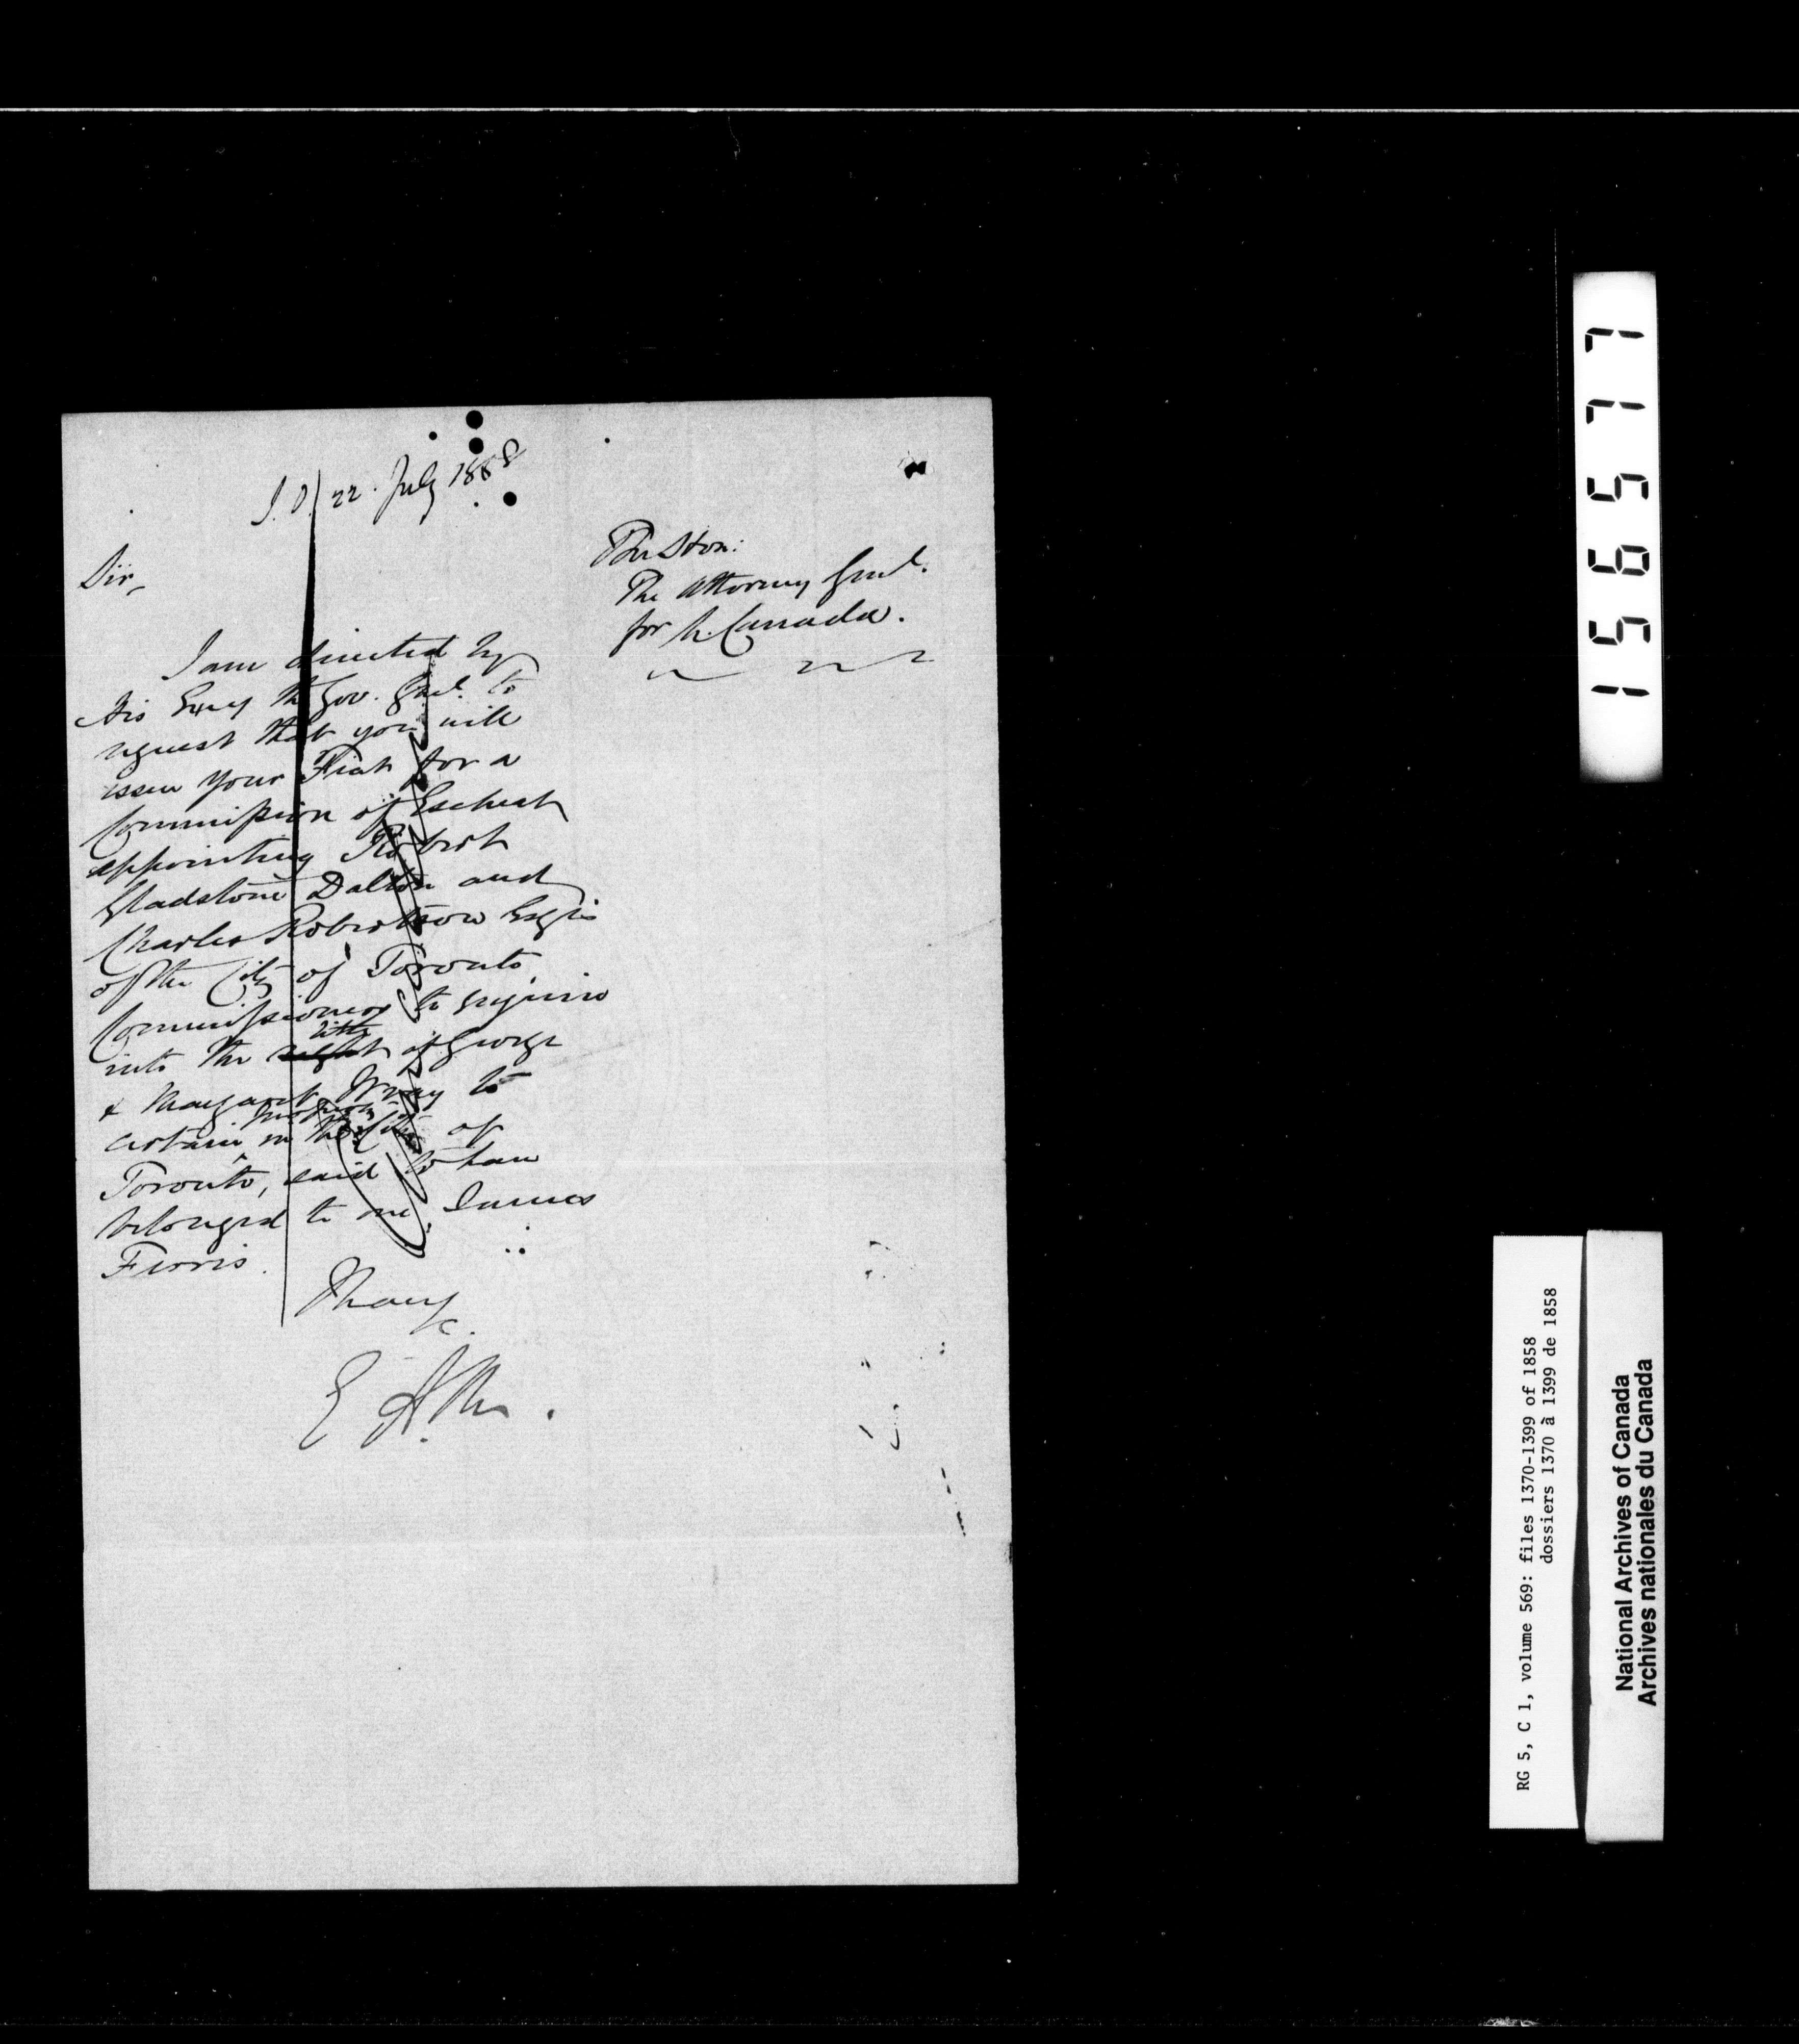 S.O. 22. July 1858
Sir,
The Hon:
The Attorney Genl.
for U. Canada.
I am directed by
His Excy the Gov. Genl. to
request that you will
issue your Fiat for a
Commission of Escheat
appointing Robert
Gladstone Dalton and
Charles Robertson Esqrs
of the City of Toronto
Commissioners to enquire
into the right title of George
& Margaret Wray to
certain property in the City of
Toronto, said to have
belonged to one James
Ferris.
I have
&c.
156577
RG 5, C 1, volume 569: files 1370-1399 of 1858
dossiers 1370 à 1399 de 1858
National Archives of Canada
Archives nationales du Canada